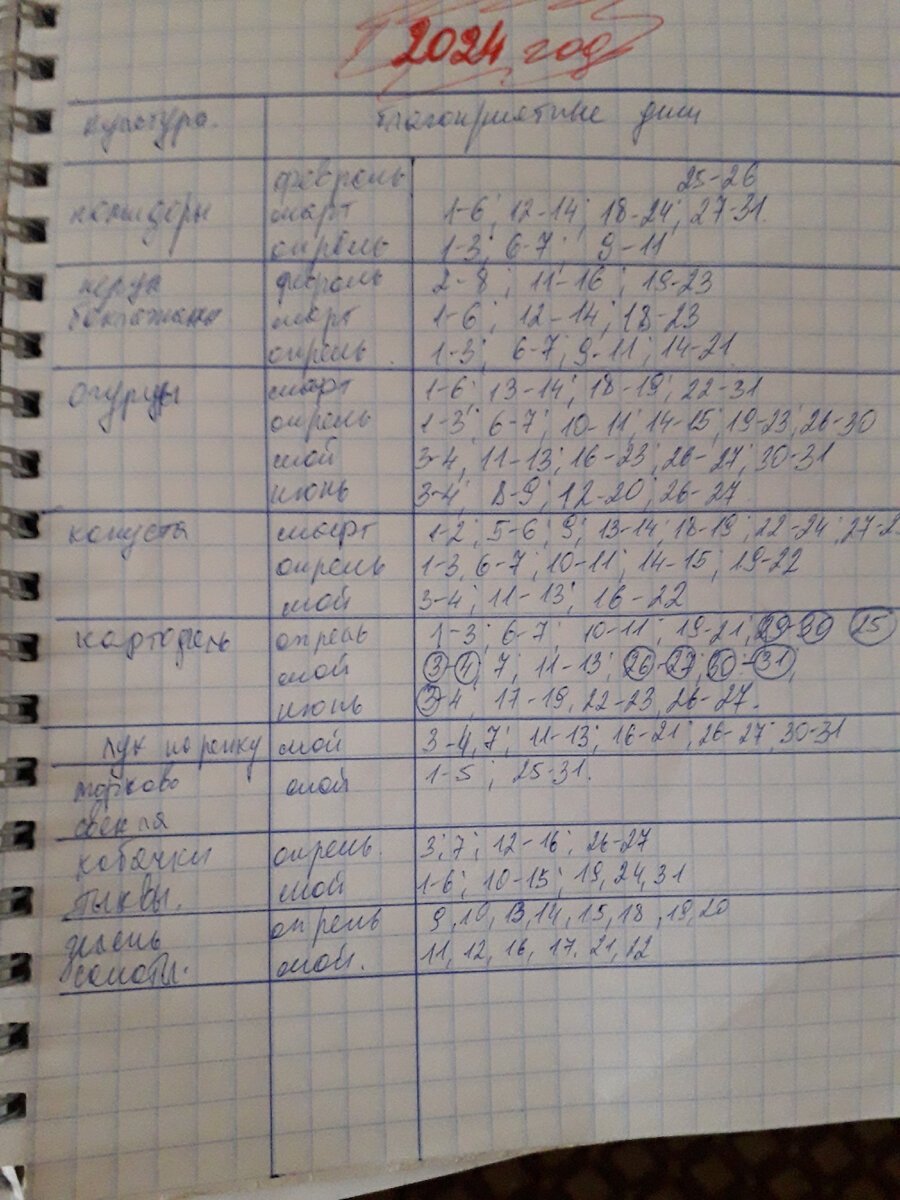 2024 год
культура. благоприятные дни
февраль 25-26
помидоры март 1-6; 12-14; 18-24; 27-31
апрель 1-3; 6-7; 9-11
перцы февраль 2-8; 11-16; 19-23
баклажаны март 1-6; 12-14; 18-23
апрель 1-3; 6-7; 9-11; 14-21
огурцы март 1-6; 13-14; 18-19; 22-31
апрель 1-3; 6-7; 10-11; 14-15; 19-23; 26-30
май 3-4, 11-13; 16-23; 26-27; 30-31
июнь 3-4; 8-9; 12-20; 26-27
капуста март 1-2; 5-6; 9; 13-14; 18-19; 22-24; 27-2
апрель 1-3, 6-7; 10-11; 14-15; 19-22
май 3-4; 11-13; 16-22
картофель апрель 1-3; 6-7; 10-11; 19-21; 29-30 25
май 3-4, 7; 11-13; 26-27; 30-31;
июнь 3-4, 17-19, 22-23, 26-27.
лук на репку май 3-4, 7; 11-13; 16-21; 26-27; 30-31
морковь май 1-5; 25-31.
свекла
кабачки апрель. 3; 7; 12-16; 26-27
тыквы. май 1-6; 10-15; 19, 24, 31
зелень апрель 9, 10, 13, 14, 15, 18, 19, 20
салаты. май. 11, 12, 16, 17. 21, 22